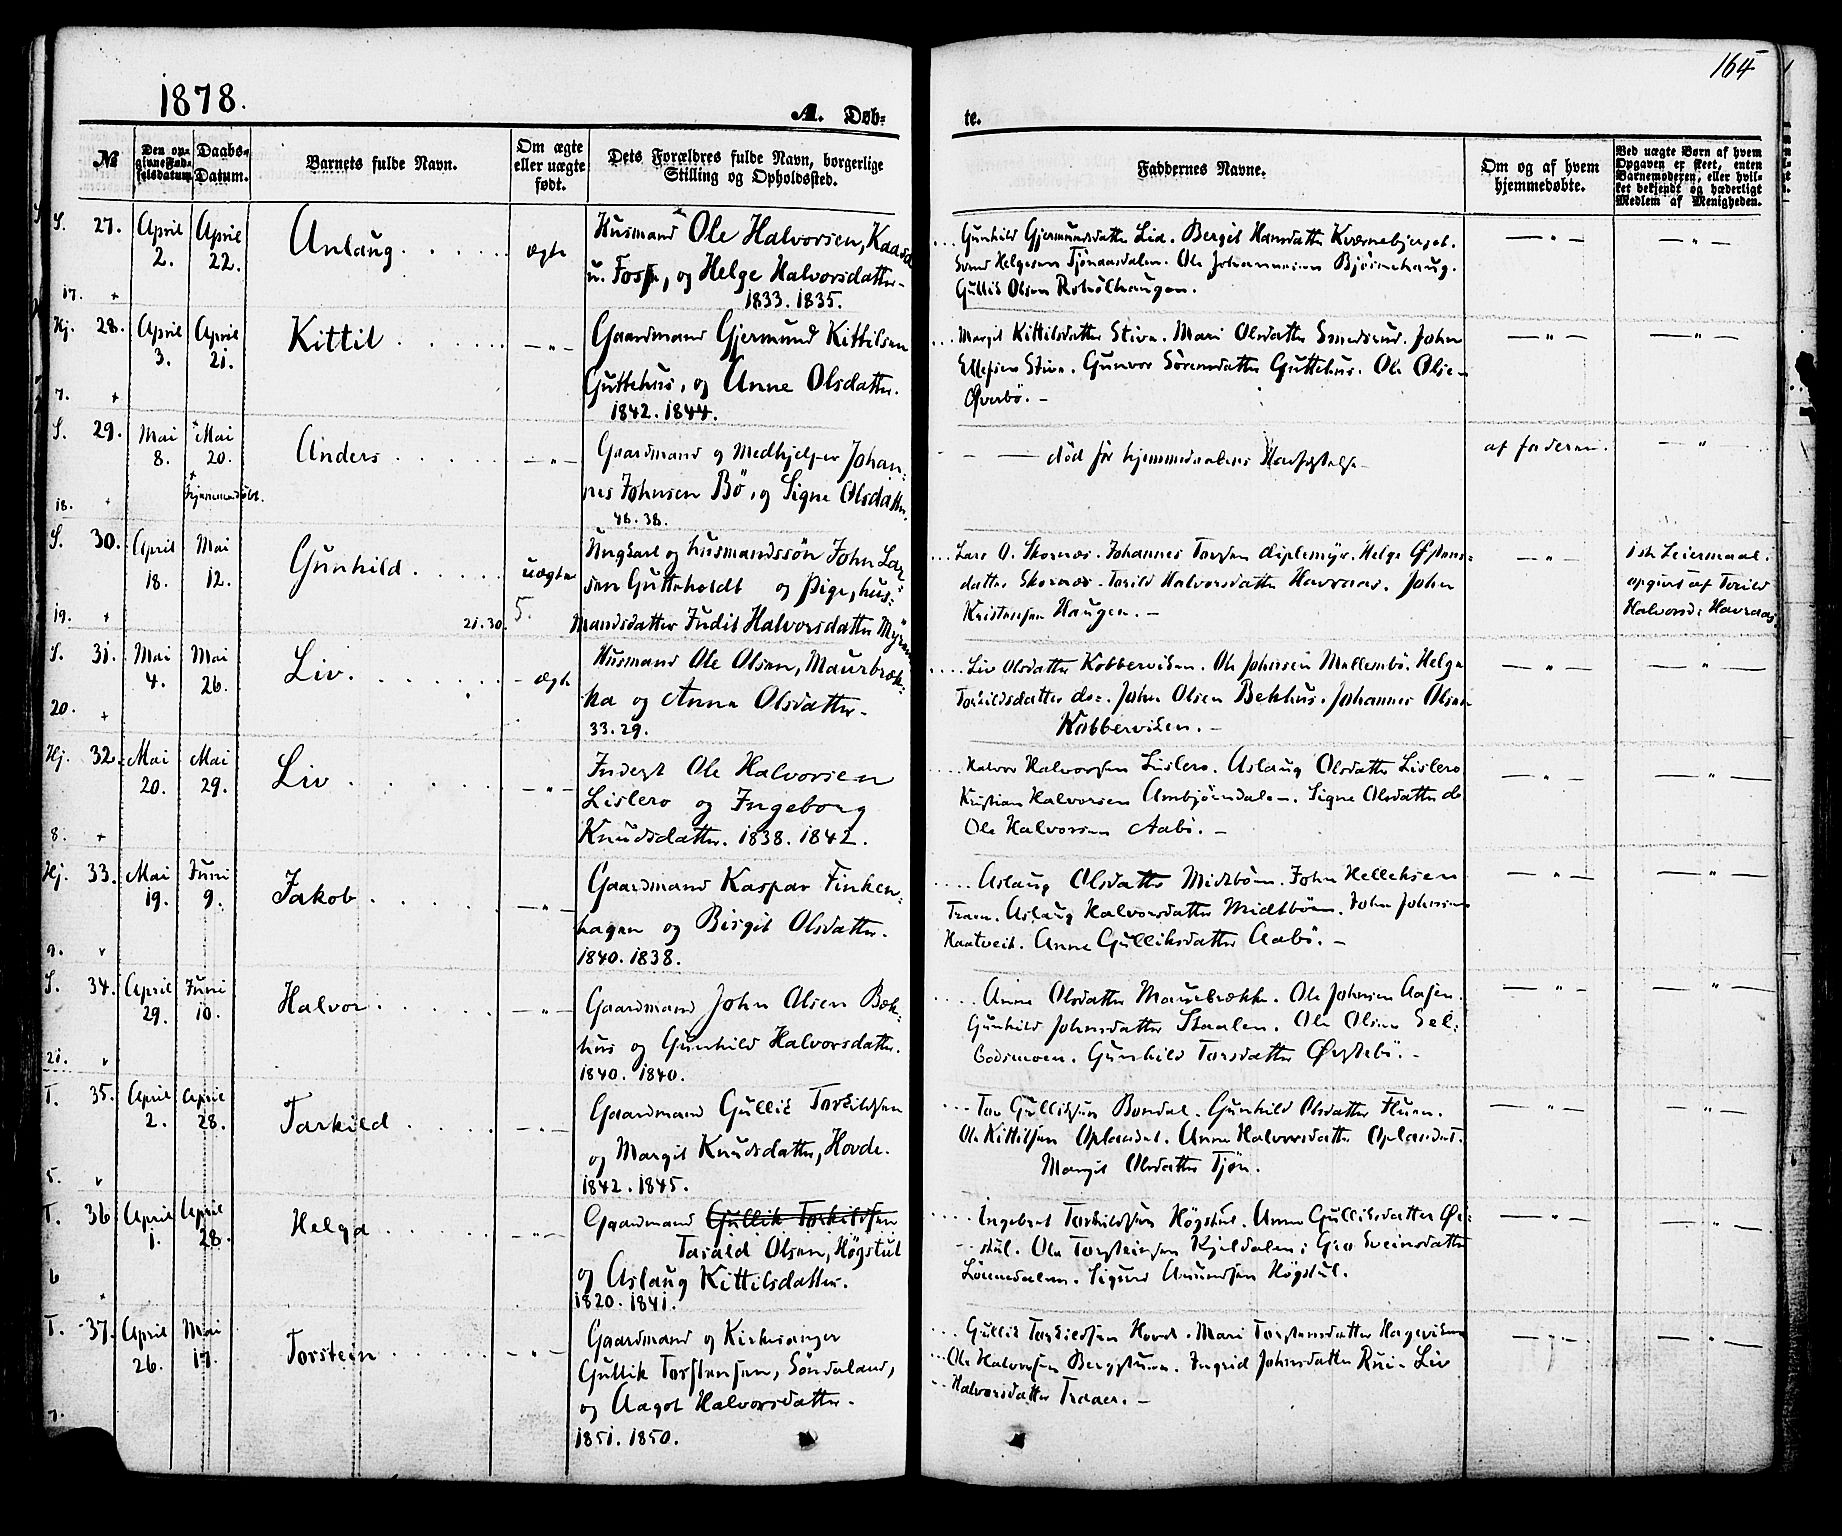 164
1878.
A. Døb-
te.
№
Den op-
givne Fød-
selsdatum.
Daabs-
Datum.
Barnets fulde Navn.
Om ægte
eller uægte
født.
Dets Forældres fulde Navn, borgerlige
Stilling og Opholdssted.
Faddernes Navne.
Om og af hvem
hjemmedøbte.
Ved uægte Børn af hvem
Opgaven er skeet, enten
Barnemoderen, eller hvil-
ket bekjendt og hæderligt
Medlem af Menigheden.
S. 27. April 2. April 22. Anlaug ægte
17.
Husmand Ole Halvorsen, Kaasa
u. Foss, og Helge Halvorsdatter-
1833. 1835.
Gunhild Gjermundsdatter Lid. Bergit Hansdatter Kværnebjerget.
Svend Helgesen Tjönaasdalen. Ole Johannesen Björnehaug.
Gullik Olsen Roholthaugen.
Hj. 28. April 3. April 21. Kittil — „ —
7.
Gaardmand Gjermund Kittilsen
Guttehus, og Anne Olsdatter.
1842. 1844.
Margit Kittilsdatter Stivi. Mari Olsdatter Smedsrud. John
Ellefsen Stivi. Gunvor Sörensdatter Guttehus. Ole Olse-
Øverbö. -
S. 29. Mai 8. Mai 20. Anders — „ —
hjemmedøbt.
18.
Gaardmand og Medhjelper Johan-
nes Johnsen Bö, og Signe Olsdatter.
46. 38.
død før hjemmedaabens Stadfæstelse - af faderen.
S. 30. April 18. Mai 12. Gunhild uægte
19. 21. 30. 5.
Ungkarl og husmandssön John Lar-
sen Gutteholdt og Pige, hus-
mandsdatter Judit Halvorsdatter Myren
Lars O. Skornes. Johannes Torsen Diplemyr. Helge Østens-
datter Skornes. Torild Halvorsdatter Havraas. John
Kristensen Haugen. -
1ste Leiermaal.
opgivet af Torild
Halvorsd: Havraas.
S. 31. Mai 4. Mai 26. Liv. ægte
20.
Husmand Ole Olsen, Maurbræk-
ka og Anne Olsdatter.
33. 29.
Liv Olsdatter Kobberviken. Ole Johnsen Mellembö. Helge
Torkildsdatter do-. John Olsen Bekhus. Johannes Olsen
Kobberviken. -
Hj. 32. Mai 20. Mai 29. Liv — „ —
8.
Inderst Ole Halvorsen
Lislero og Ingeborg
Knudsdatter. 1838. 1842.
Halvor Halvorsen Lislero. Aslaug Olsdatter Lislero
Kristian Halvorsen Ambjörndalen. Signe Olsdatter do
Ole Halvorsen Aabö. -
Hj. 33. Mai 19. Juni 9. Jakob — „ —
9.
Gaardmand Kaspar Finken-
hagen og Birgit Olsdatter.
1840. 1838.
Aslaug Olsdatter Midtböen. John Helleksen
Traen. Aslaug Halvorsdatter Midtböen. John Johnsen
Haatveit. Anne Gulliksdatter Aabö. -
S. 34. April 29. Juni 10. Halvor — „ —
21.
Gaardmand John Olsen Bek-
hus og Gunhild Halvorsdatter.
1840. 1840.
Anne Olsdatter Maurbrække. Ole Johnsen Aasen.
Gunhild Johnsdatter Staalen. Ole Olsen Sel-
bodsmoen. Gunhild Torsdatter Øvstebö. -
T. 35. April 2. April 28. Tarkild — „ —
5.
Gaardmand Gullik Torkildsen
og Margit Knudsdatter, Hovde.
1842. 1845.
Tov Gulliksen Bondal. Gunhild Olsdatter Fluen.
Ole Kittilsen Oplandet. Anne Halvorsdatter Oplandet.
Margit Olsdatter Tjön.
T. 36 April 1. April 28. Helga — „ —
6
Gaardmand Gullik Torkildsen
Tarald Olsen, Høgstul
og Aslaug Kittilsdatter.
1820. 1841.
Ingebret Torkildsen Høgstul. Anne Gulliksdatter Øi-
stul. Ole Torsteinsen Kjeldalen; Gro Sveinsdatter
Lönnedalen. Sigurd Amundsen Høgstul.
T. 37. April 26. Mai 17. Torstein — „ —
7.
Gaardmand og Kirkesanger
Gullik Torstensen, Söndaland,
og Aagot Halvorsdatter.
1851. 1850.
Gullik Torkildsen Hovde. Mari Torstensdatter Hageviken
Ole Halvorsen Bergstuen. Ingrid Johnsdatter Rui- Liv
Halvorsdatter Traaen. -